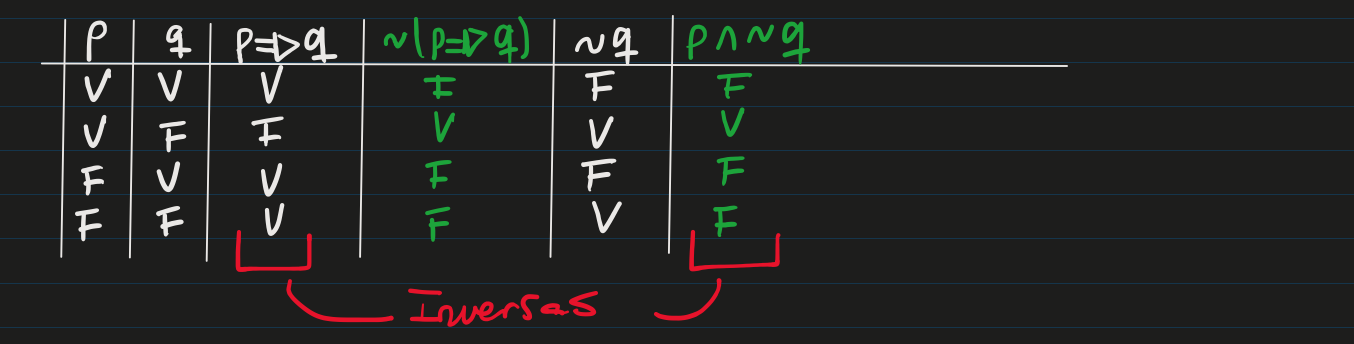 p q p⇒q ~(p⇒q) ~q p∧~q
V V V F F F
V F F V V V
F V V F F F
F F V F V F
Inversas